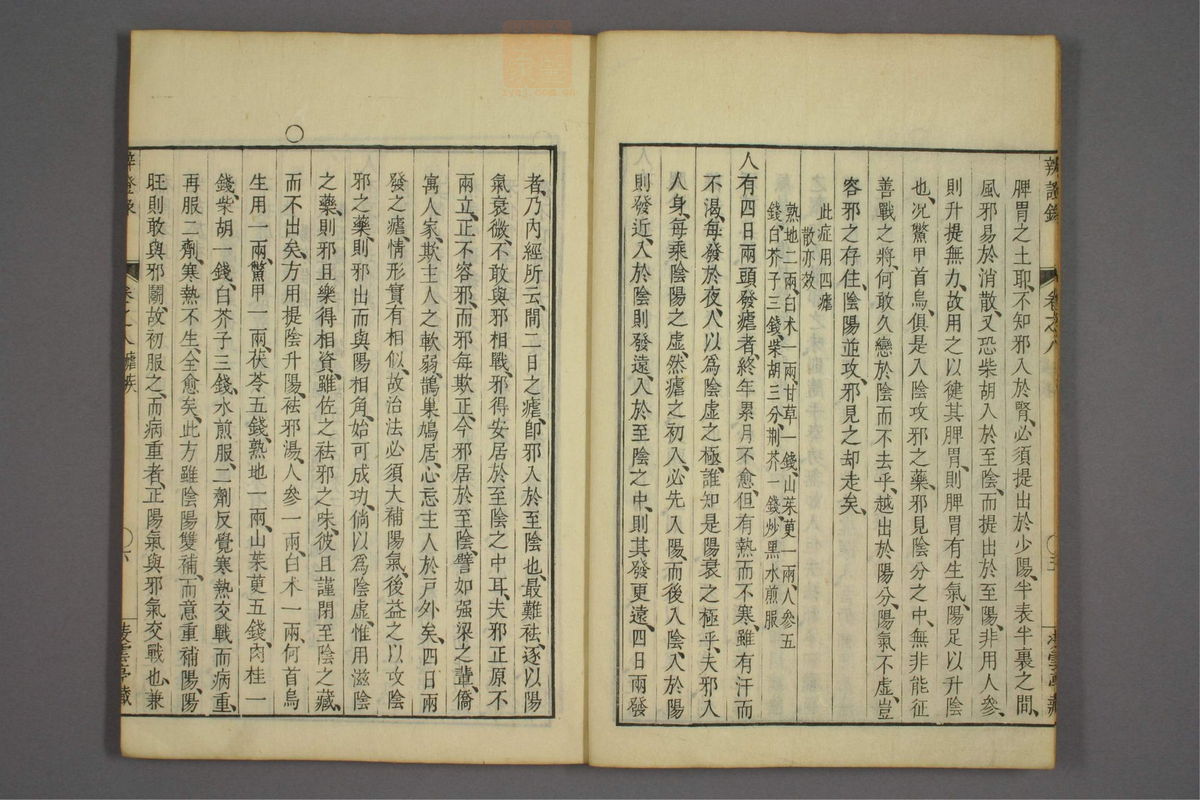 辨證錄 卷之八
脾胃之土耶、不知邪入於腎、必須提出於少陽、半表半裏之間、
風邪易於消散、又恐柴胡入於至陰、而提出於至陽、非用人參、
則升提無力、故用之以健其脾胃、則脾胃有生氣、陽足以升陰
也、況鱉甲首烏、俱是入陰攻邪之藥、邪見陰分之中、無非能征
善戰之將、何敢久戀於陰而不去乎、越出於陽分、陽氣不虛、豈
容邪之存住、陰陽並攻、邪見之却走矣、
此症用四瘧
散亦效
熟地二兩、白术一兩、甘草一錢、山茱萸一兩、人參五
錢、白芥子三錢、柴胡三分、荆芥一錢、炒黑水煎服
人有四日兩頭發瘧者、終年累月不愈、但有熱而不寒、雖有汗而
不渴、每發於夜、人以爲陰虛之極、誰知是陽衰之極乎、夫邪入
人身、每乘陰陽之虛、然瘧之初入、必先入陽、而後入陰、入於陽
則發近、入於陰則發遠、入於至陰之中、則其發更遠、四日兩發
者、乃內經所云、間二日之瘧、卽邪入於至陰也、最難祛、逐以陽
氣衰微、不敢與邪相戰、邪得安居於至陰之中耳、夫邪正原不
兩立、正不容邪、而邪每欺正、今邪居於至陰、譬如强梁之輩、僑
寓人家、欺主人之軟弱、鵲巢鳩居、心忘主人於户外矣、四日兩
發之瘧、情形實有相似、故治法必須大補陽氣、後益之以攻陰
邪之藥、則邪出而與陽相角、始可成功、倘以爲陰虛、惟用滋陰
之藥、則邪且樂得相資、雖佐之祛邪之味、彼且謹閉至陰之藏、
○
而不出矣、方用提陰升陽、祛邪湯、人參一兩、白术一兩、何首烏
生用一兩、鱉甲一兩、茯苓五錢、熟地一兩、山茱萸五錢、肉桂一
錢、柴胡一錢、白芥子三錢、水煎服、二劑反覺寒熱交戰而病重、
再服二劑、寒熱不生、全愈矣、此方雖陰陽雙補、而意重補陽、陽
旺則敢與邪鬭、故初服之、而病重者、正陽氣與邪氣交戰也、兼
卷之八 瘧疾 ○六